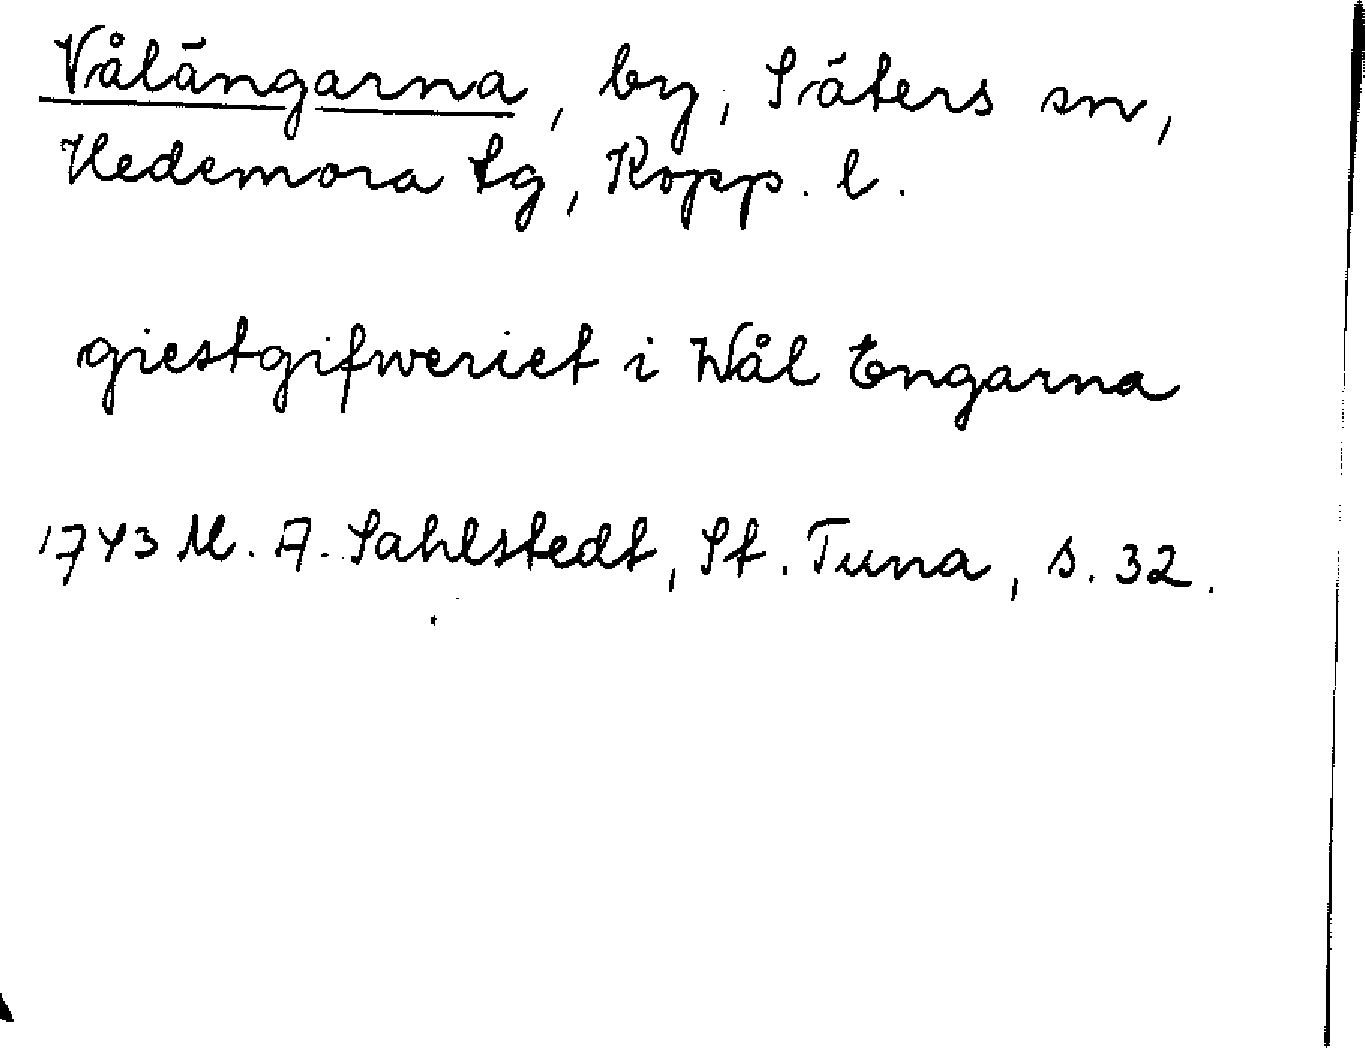 Vålängarna, by, Säters sn,
Hedemora tg, Kopp. l.
giestgifweriet i Wål Engarna
1743 M. A. Sahlstedt, St. Tuna, s. 32.